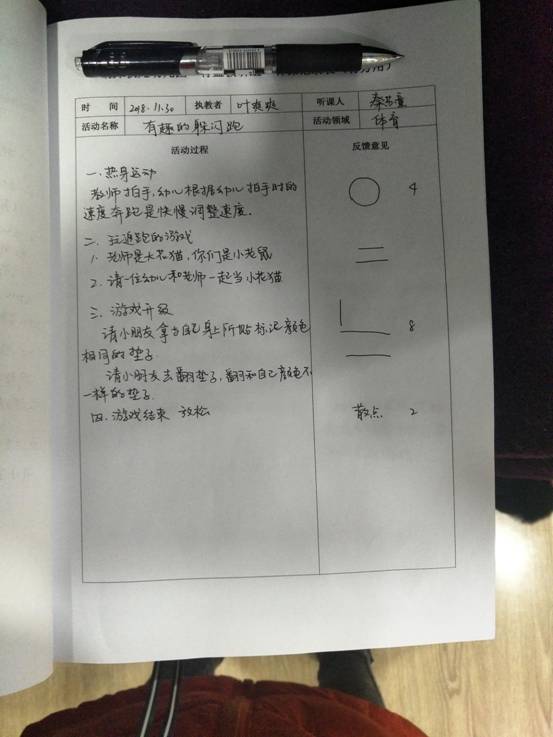 时 间 2018.11.30 执教者 叶爽爽 听课人
活动名称 有趣的躲闪跑 活动领域 体育
活动过程 反馈意见
一.热身运动
老师拍手,幼儿根据幼儿拍手时的 4
速度奔跑是快慢调整速度.
二.玩追跑的游戏
1.老师是大花猫,你们是小老鼠
2.请一位幼儿和老师一起当小花猫
三.游戏升级
请小朋友拿与自己身上所贴标记颜色 8
相同的垫子.
请小朋友去翻垫子,翻和自己颜色不
一样的垫子.
四.游戏结束 放松 散点 2